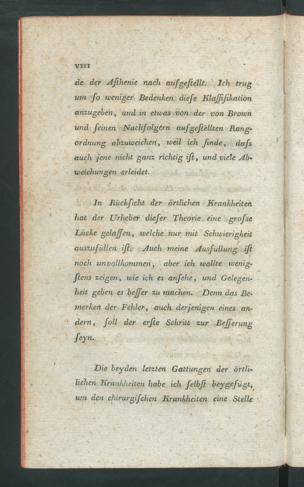 VIII
de der Aſthenie nach aufgeſtellt. Ich trug
um ſo weniger Bedenken dieſe Klaſſifikation
anzugeben, und in etwas von der von Brown
und ſeinen Nachfolgern aufgeſtellten Rang-
ordnung abzuweichen, weil ich finde, daſs
auch jene nicht ganz richtig iſt, und viele Ab-
weichungen erleidet.
In Rückſicht der örtlichen Krankheiten
hat der Urheber dieſer Theorie eine groſse
Lücke gelaſſen, welche nur mit Schwierigkeit
auszufüllen iſt. Auch meine Ausfüllung iſt
noch unvollkommen, aber ich wollte wenig-
ſtens zeigen, wie ich es anſehe, und Gelegen-
heit geben es beſſer zu machen. Denn das Be-
merken der Fehler, auch derjenigen eines an-
dern, ſoll der erſte Schritt zur Beſſerung
ſeyn.
Die beyden letzten Gattungen der örtli-
lichen Krankheiten habe ich ſelbſt beygefügt,
um den chirurgiſchen Krankheiten eine Stelle